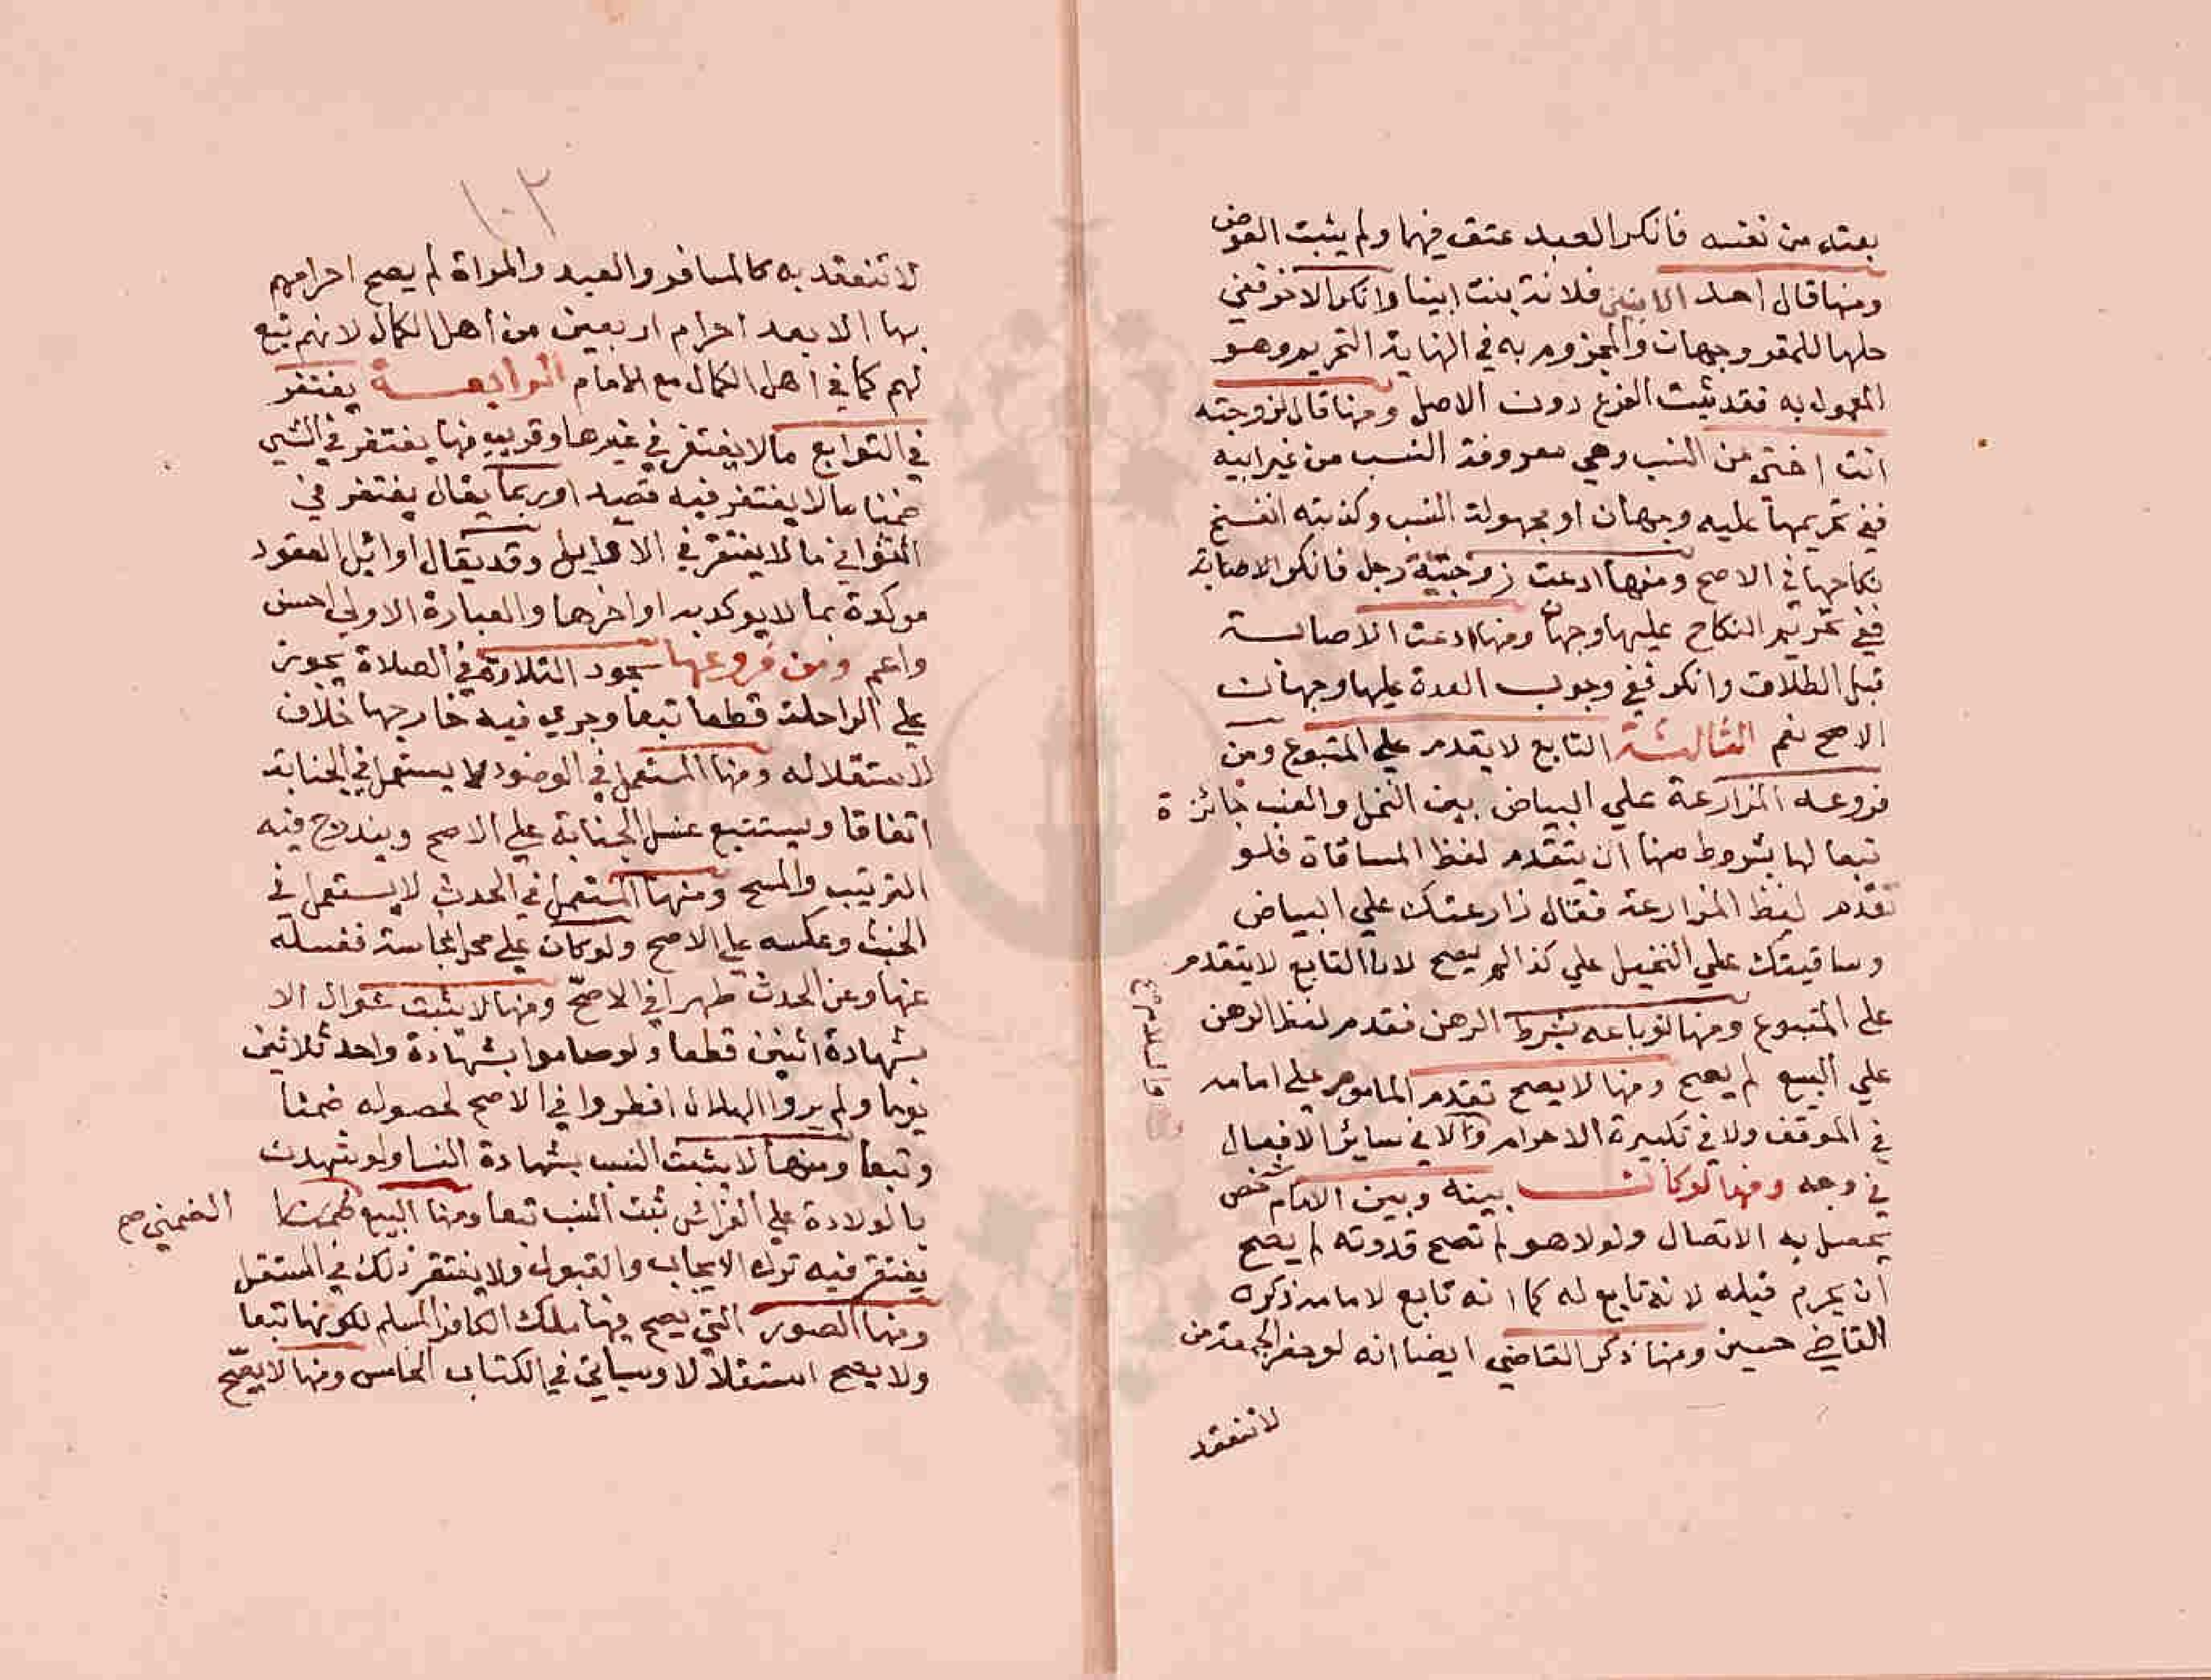 بعته من نفسه فانكر العبد عتق فيهما ولم يثبت العوض
ومنها قال احد الابنين فلانة بنت ابينا وانكر الاخر ففي
حلها للمقر وجهان والمجزوم به في النهاية التحريم وهو
المعمول به فقد ثبت الفرع دون الاصل ومنها قال لزوجته
انت اختي من النسب وهي معروفة النسب من غير ابيه
ففي تحريمها عليه وجهان او مجهولة النسب وكذبته انفسخ
نكاحها في الاصح ومنها ادعت زوجية رجل فانكر الاصابة
ففي تحريم النكاح عليها وجهان ومنها ادعت الاصابة
قبل الطلاق وانكر ففي وجوب العدة عليها وجهان
الاصح نعم الثالثة التابع لا يقدم علي المتبوع ومن
فروعه المزارعة علي البياض بين النخل والعنب جائزة
تبعا لها بشروط منها ان يتقدم لفظ المساقاة فلو
تقدم لفظ المزارعة فقال زارعتك علي البياض
وساقيتك علي النخيل علي كذا لم يصح لان التابع لا يتقدم
علي المتبوع ومنها لو باعه بشرط الرهن فقدم لفظ الرهن
علي البيع لم يصح ومنها لا يصح تقدم الماموم علي امامه
في الموقف ولا في تكبيرة الاحرام والا في سائر الافعال
والسلام صح
في وجه ومنها لو كان بينه وبين الامام شخص
يحصل به الاتصال ولولا هو لم تصح قدوته لم يصح
ان يحرم قبله لانه تابع له كما انه تابع لامامه ذكره
القاضي حسين ومنها ذكر القاضي ايضا انه لو حضر الجمعة من
لا تنعقد
١٠٢
لا تنعقد به كالمسافر والعبد والمراة لم يصح احرامهم
بها الا بعد احرام اربعين من اهل الكمال لانهم تبع
لهم كما في اهل الكمال مع الامام الرابعة يغتفر
في التوابع ما لا يغتفر في غيرها وقريب منها يغتفر في الشي
ضمنا ما لا يغتفر فيه قصدا وربما يقال يغتفر في
الثواني ما لا يغتفر في الاوايل وقد يقال اوائل العقود
موكدة بما لا يوكد به اواخرها والعبارة الاولي احسن
واعم ومن فروعها سجود التلاوة في الصلاة يجوز
علي الراحلة قطعا تبعا وجري فيه خارجها خلاف
لاستقلاله ومنها المستعمل في الوضوء لا يستعمل في الجنابة
اتفاقا ويستتبع غسل الجنابة علي الاصح ويندرج فيه
الترتيب والمسح ومنها المستعمل في الحدث لا يستعمل في
الخبث وعكسه علي الاصح ولو كان علي محل نجاسة فغسله
عنها وعن الحدث طهرا في الاصح ومنها لا يثبت شوال الا
بشهادة اثنين قطعا ولو صاموا بشهادة واحد ثلاثين
يوما ولم يروا الهلال افطروا في الاصح لحصوله ضمنا
وتبعا ومنها لا يثبت النسب بشهادة النسا ولو شهدت
بالولادة علي الفراش ثبت النسب تبعا ومنها البيع
الضمني صح
يغتفر فيه ترك الايجاب والقبول ولا يغتفر ذلك في المستقل
ومنها الصور التي يصح فيها ملك الكافر المسلم لكونها تبعا
ولا يصح استقلالا وسياتي في الكتاب الخامس ومنها لا يصح